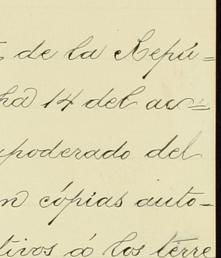 de la Repú=
ha 14 del ac=
apoderado del
n cópias auto-
tivos á los terre